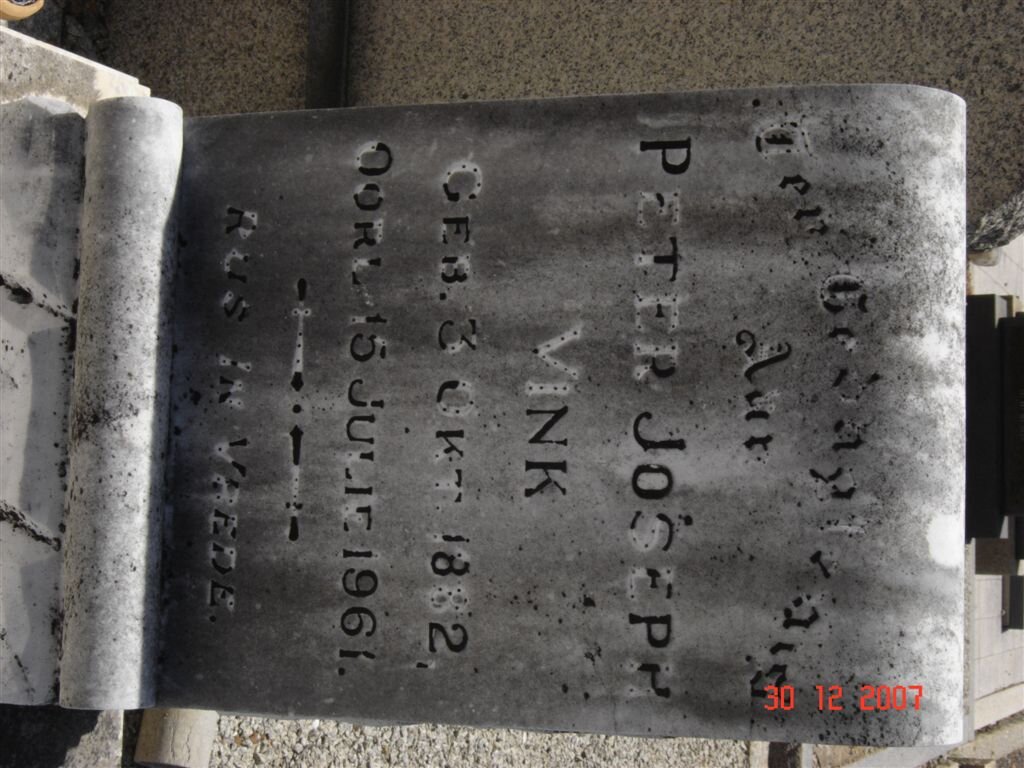 Ter Gedagtenis
Aan
PETER JOSEPH
VINK
GEB. 3 OKT. 1882,
OORL. 15 JULIE 1961.
RUS IN VREDE.
30 12 2007